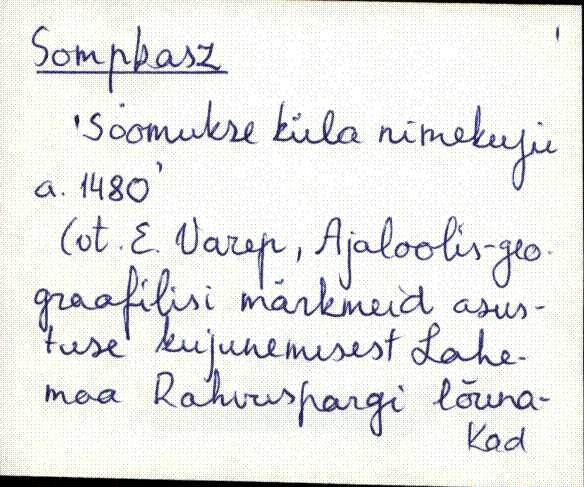 Sompkasz
'Söomukse küla nimekuju
a. 1480'
(vt. E. Varep, Ajaloolis-geo-
graafilisi märkmeid asus-
tuse kujunemisest Lahe-
maa Rahvuspargi lõuna-
Kad